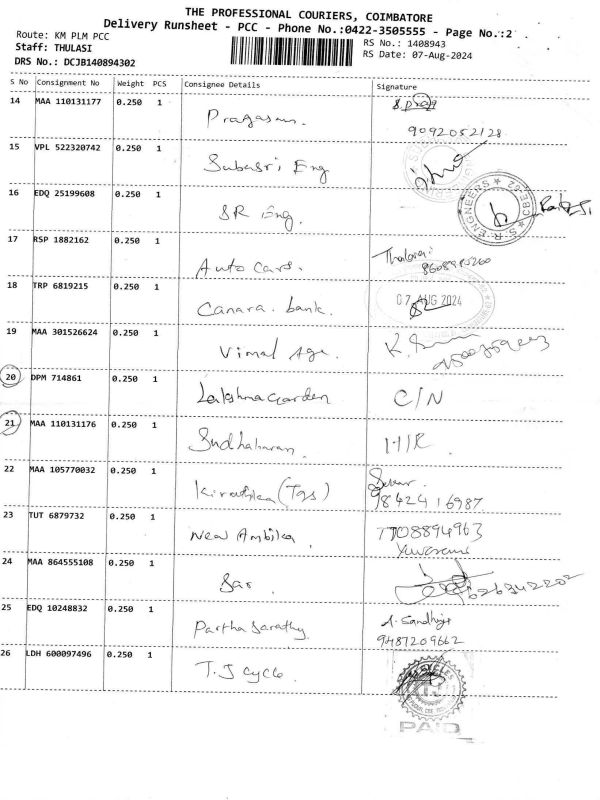 THE PROFESSIONAL COURIERS, COIMBATORE
Delivery Runsheet - PCC - Phone No.:0422-3505555 - Page No.:2
Route: KM PLM PCC
RS No.: 1408943
Staff: THULASI
RS Date: 07-Aug-2024
DRS No.: DCJB140894302
S No Consignment No Weight PCS Consignee Details Signature
14 MAA 110131177 0.250 1 Pragasam
9092052128
15 VPL 522320742 0.250 1 Subasri Eng
16 EDQ 25199608 0.250 1 SR Eng.
S.R ENGINEERS CBE-62
17 RSP 1882162 0.250 1 Auto Cars.
18 TRP 6819215 0.250 1 Canara. bank.
07 AUG 2024
19 MAA 301526624 0.250 1 Vimal Age.
20 DPM 714861 0.250 1 Lakshmagarden C/N
21 MAA 110131176 0.250 1 Sudhakaran. I-I/R
22 MAA 105770032 0.250 1 Kiruthika (Tgs)
9842416987
23 TUT 6879732 0.250 1 New Ambika. 7708894963
24 MAA 864555108 0.250 1 Sar
25 EDQ 10248832 0.250 1 Partha Sarathy. Sandhiya
9487209662
26 LDH 600097496 0.250 1 T.J cycle.
PAID